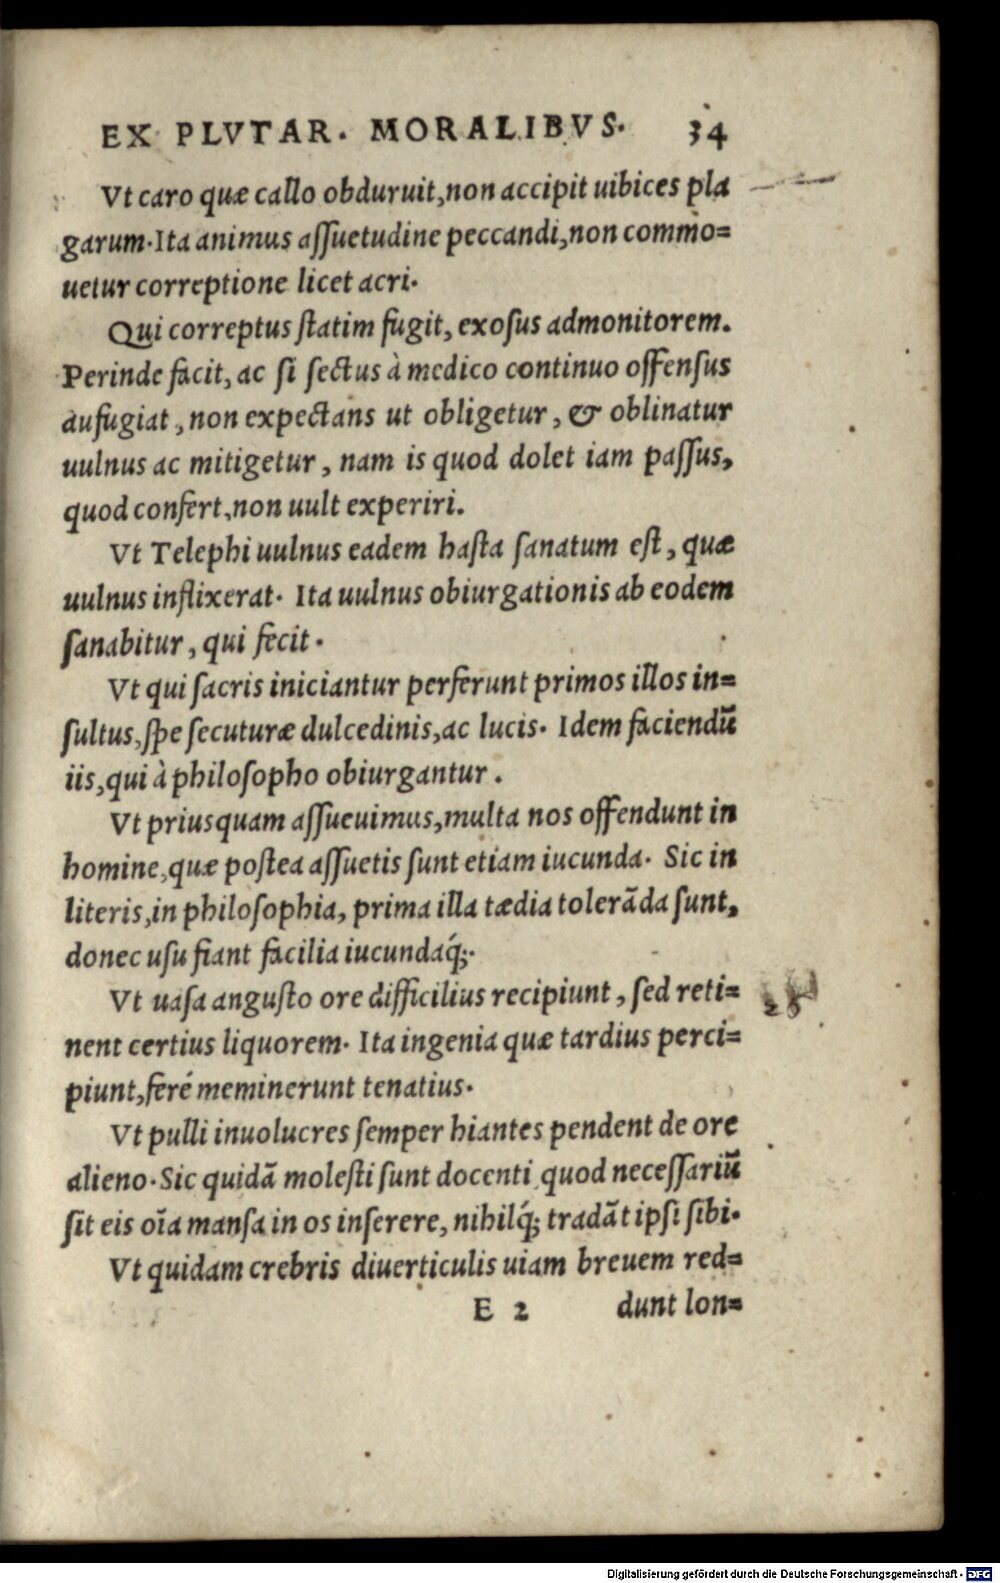 EX PLVTAR. MORALIBVS. 34
Vt caro quæ callo obduruit, non accipit uibices pla
garum. Ita animus assuetudine peccandi, non commo=
uetur correptione licet acri.
Qui correptus statim fugit, exosus admonitorem.
Perinde facit, ac si sectus à medico continuo offensus
aufugiat, non expectans ut obligetur, & oblinatur
uulnus ac mitigetur, nam is quod dolet iam passus,
quod confert, non uult experiri.
Vt Telephi uulnus eadem hasta sanatum est, quæ
uulnus inflixerat. Ita uulnus obiurgationis ab eodem
sanabitur, qui fecit.
Vt qui sacris iniciantur perferunt primos illos in=
sultus, spe secuturæ dulcedinis, ac lucis. Idem faciendū
iis, qui à philosopho obiurgantur.
Vt priusquam assueuimus, multa nos offendunt in
homine, quæ postea assuetis sunt etiam iucunda. Sic in
literis, in philosophia, prima illa tædia tolerāda sunt,
donec usu fiant facilia iucundaq́;.
Vt uasa angusto ore difficilius recipiunt, sed reti=
nent certius liquorem. Ita ingenia quæ tardius perci=
piunt, feré meminerunt tenatius.
Vt pulli inuolucres semper hiantes pendent de ore
alieno. Sic quidā molesti sunt docenti quod necessariū
sit eis oīa mansa in os inserere, nihilq́; tradāt ipsi sibi.
Vt quidam crebris diuerticulis uiam breuem red=
E 2 dunt lon=
Digitalisierung gefördert durch die Deutsche Forschungsgemeinschaft - DFG